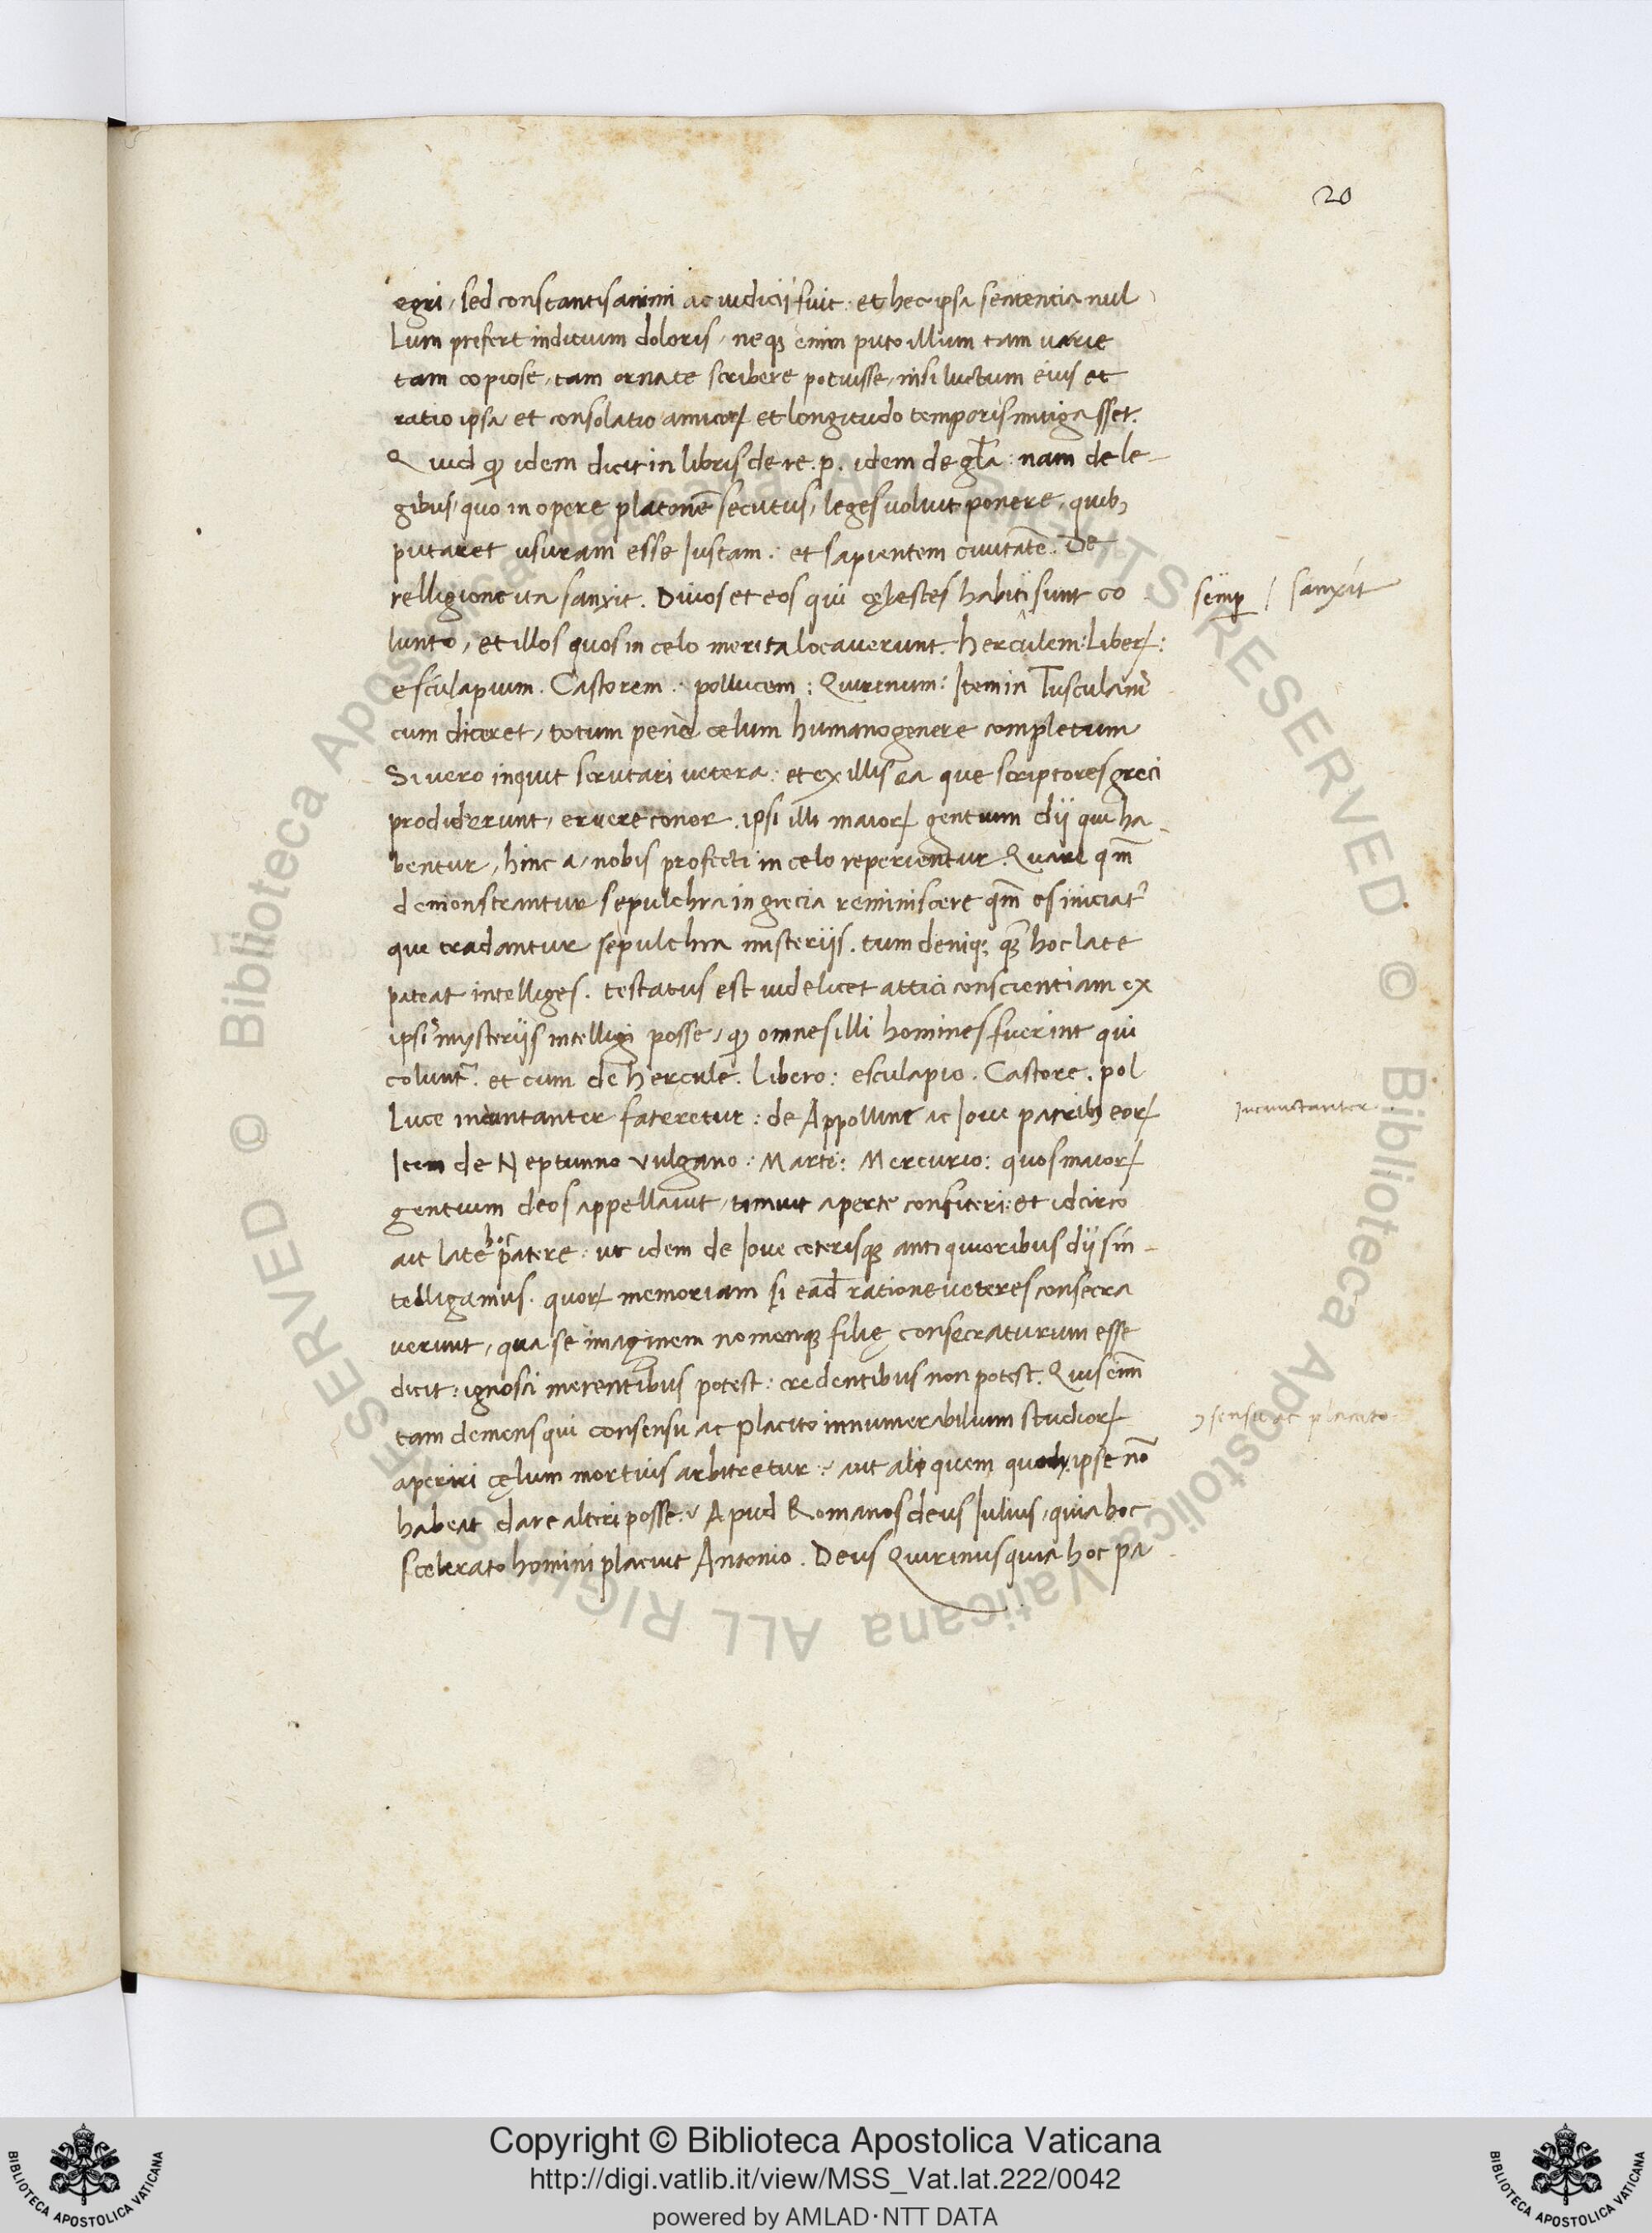 20
egri, sed constantis animi ac iudicii fuit. et hec ipsa sententia nul
lum prefert indicium doloris, neqȝ enim puto illum tam varie
tam copiose, tam ornate scribere potuisse, nisi luctum eius et
ratio ipsa et consolatio amicoꝝ et longitudo temporis mitigasset.
Quid ꝙ idem dicit in libris de re. p. idem de gl̅a: nam de le-
gibus, quo in opere platonē secutus, leges voluit ponere, quibȝ
putaret usuram esse Iustam. et sapientem ciuitatē. De
relligione ita sanxit. Divos et eos qui cęlestes habiti sunt co
lunto, et illos quos in celo merita locaverunt. herculem: Liberꝝ:
esculapium. Castorem. pollucem: Quirinum: Item in Tusculanis
cum diceret, totum pene celum humano genere completum
Si vero inquit scrutari vetera: et ex illis ea que scriptores greci
prodiderunt, eruere conor. ipsi illi maioꝝ gentium dij qui ha-
bentur, hinc a, nobis profecti in celo reperientur. Quare qm̅
demonstrantur sepulchra in grecia reminiscere qm̅ es iniciatꝰ
que tradantur sepulchra misterijs. tum deniqȝ qȝ̅ hoc late
pateat intelliges. testatus est videlicet attici conscientiam ex
ipsis mysterijs intelligi posse, ꝙ omnes illi homines fuerint qui
coluntꝰ. et cum de hercule. Libero: esculapio. Castore. pol
luce incuntanter fateretur: de Appolline ac Iove patribȝ eoꝝ
Item de Neptunno vulgano: Marte: Mercurio: quos maioꝝ
gentium deos appellavit, timuit aperte confiteri: et idcirco
ait late hoc patere: ut idem de Iove ceterisqȝ antiquioribus dijs in-
telligamus. quoꝝ memoriam si ead̅ ratione veteres consecra
verunt, qua se imaginem nomenqȝ filię consecraturum esse
dicit: ignosci merentibus potest: credentibus non potest. Quis eim̅
tam demens qui consensu ac placito innumerabilium studioꝝ
aperiri cęlum mortuis arbitretur: aut aliquem quod ipse nō
habeat dare alteri posse. Apud Romanos deus Iulius, quia hoc
scelerato homini placuit Antonio. Deus Quirinus quia hoc pa
semꝑ / sanxit
Incunctanter.
ꝯsensu ac placito.
© Biblioteca Apostolica Vaticana ALL RIGHTS RESERVED © Biblioteca Apostolica Vaticana ALL RIGHTS RESERVED
Copyright © Biblioteca Apostolica Vaticana
http://digi.vatlib.it/view/MSS_Vat.lat.222/0042
powered by AMLAD·NTT DATA
BIBLIOTECA APOSTOLICA VATICANA
BIBLIOTECA APOSTOLICA VATICANA